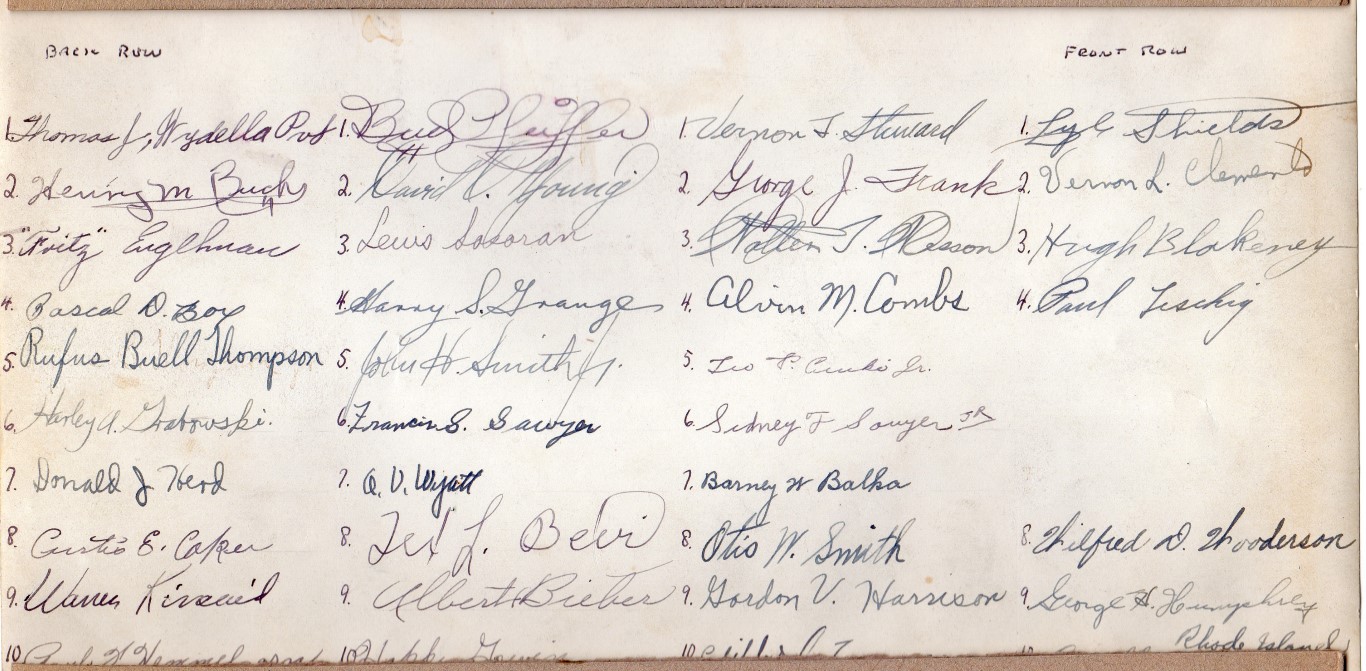 BACK ROW
FRONT ROW
1. Thomas J. Wydella Pvt
2. Henry M Buck
3. "Fritz" Euglhman
4. Pascal D. Box
5. Rufus Buell Thompson
6. Harley A. Grabowski.
7. Donald J Head
8. Curtis E. Coker
9. Warren Kincaid
10
1. Bud Pfeiffer
2. David C. Young
3. Lewis
4. Harry S. Grange
5. John H. Smith Jr.
6. Francis S. Sawyer
7. A. V. Wyatt
8. Tex L. Bevi
9. Albert Bieber
10 Happy
1. Vernon T. Steward
2. George J. Frank
3. Walter T.
4. Alvin M. Combs
5. Leo P. Jr.
6. Sidney F Sawyer JR
7. Barney W Balka
8. Otis W. Smith
9. Gordon V. Harrison
10
1. Lyle Shields
2. Vernon L. Clements
3. Hugh Blakeney
4. Paul Tischig
8. Wilfred D. Wooderson
9. George H. Humphrey
Rhode Island